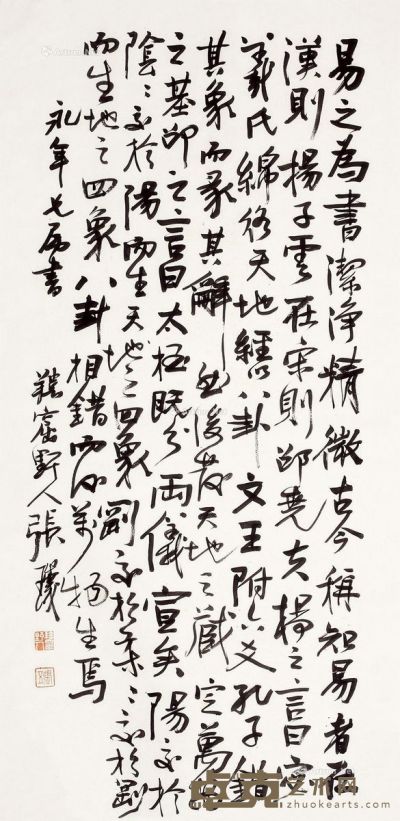 易之為書潔淨精微古今稱知易者在
漢則揚子雲在宋則邵堯夫揚之言曰宓
羲氏綿絡天地經以八卦文王附六爻孔子錯
其象而彖其辭然後發天地之藏定萬物
之基邵之言曰太極既分兩儀宣矣陽交於
陰陰交於陽而生天地之四象剛交於柔柔交於剛
而生地之四象八卦相錯而後萬物生焉
永年七兄書
野人張
卓克艺术网
zhuokearts.com